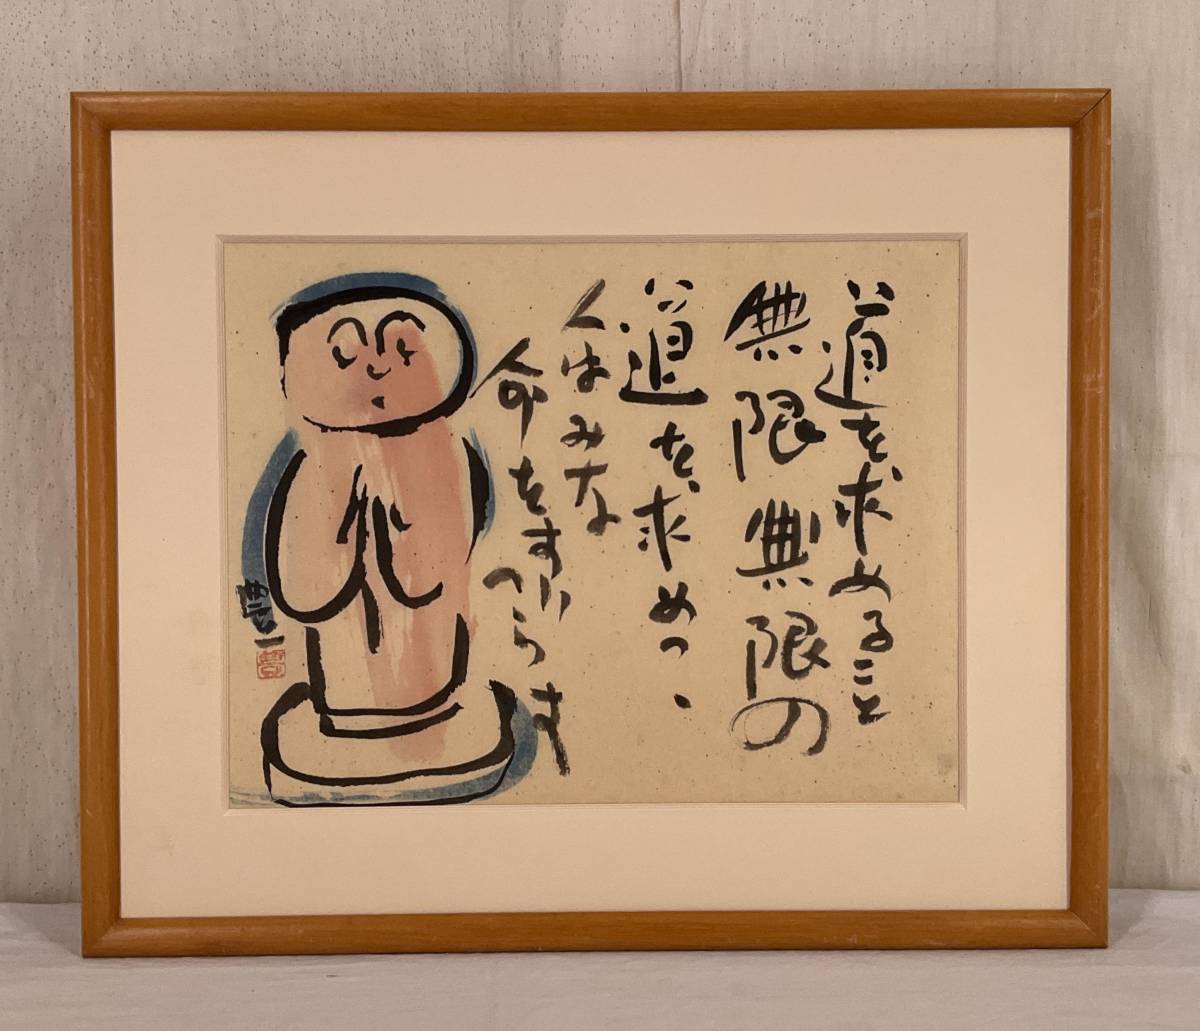 道を求めること
無限無限の
道を求めつ、
人はみな
命をすりへらす